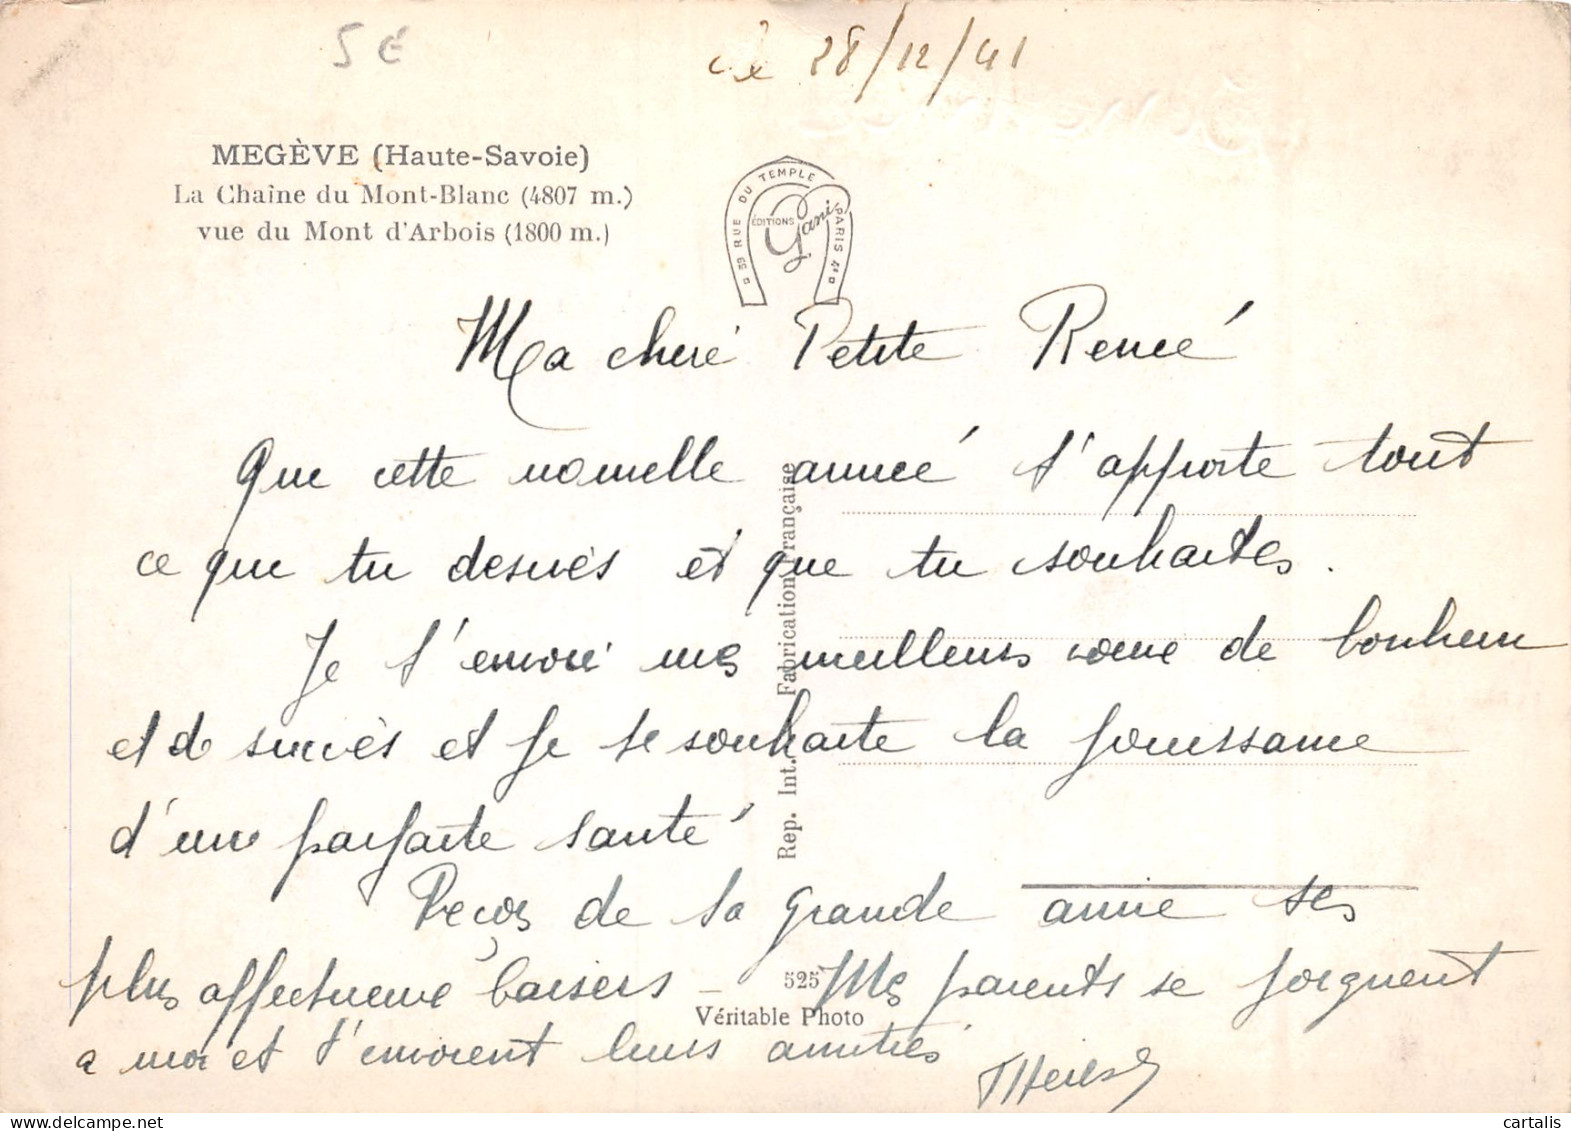 5 €
Le 28/12/41
MEGÈVE (Haute-Savoie)
La Chaîne du Mont-Blanc (4807 m.)
vue du Mont d'Arbois (1800 m.)
59 RUE DU TEMPLE PARIS 4e
ÉDITIONS Gani
Ma cheré Petite Reneé
Que cette nouvelle anneé t'apporte tout
ce que tu desirés et que tu souhaites.
Je t'envoie mes meilleurs voeux de bonheur
et de succès et je te souhaite la jouissance
d'une parfaite santé
Reçois de ta grande amie ses
plus affectueux baisers - Mes parents se joignent
a moi et t'envoient leurs amitiés
Therese
Rep. Int. Fabrication Française
525
Véritable Photo
cartalis
www.delcampe.net